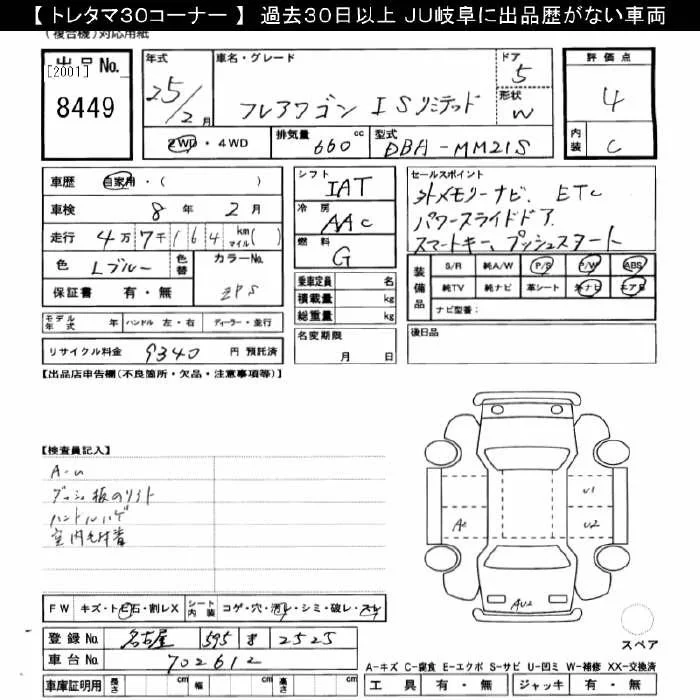 【 トレタマ30コーナー 】 過去30日以上 JU岐阜に出品歴がない車両
(複合機)対応用紙
出品No.
[2001]
8449
年式
25/2月
車名・グレード
フレアワゴン ISリミテッド
ドア
5
形状
W
評価点
4
内装
C
2WD・4WD
排気量
660cc
型式
DBA-MM21S
車歴 自家用・( )
車検 8年 2月
走行 4万7千164 km マイル( )
色 Lブルー 色替 カラーNo.
保証書 有・無 ZPS
モデル年式 年 ハンドル 左・右 ディーラー・並行
リサイクル料金 9340 円 預託済
シフト
IAT
冷房
AAC
燃料
G
乗車定員 名
積載量 kg
総重量 kg
名変期限
月 日
セールスポイント
外メモリーナビ、ETC
パワースライドドア
スマートキー、プッシュスタート
装備品 S/R 純A/W P/S P/W ABS
純TV 純ナビ 革シート 外ナビ エアB
ナビ型番:
後日品
【出品店申告欄(不良箇所・欠品・注意事項等)】
【検査員記入】
ダッシュ板のリフト
ハンドルハゲ
室内毛付着
A2
U1
U2
AU2
スペア
FW キズ・トビ石・割レX シート内装 コゲ・穴・汚レ・シミ・破レ・スレ
登録No. 名古屋 595 2525
車台No. 702612
車庫証明用 長さ cm 幅 cm 高さ cm
A-キズ C-腐食 E-エクボ S-サビ U-凹ミ W-補修 XX-交換済
工具 有・無 ジャッキ 有・無